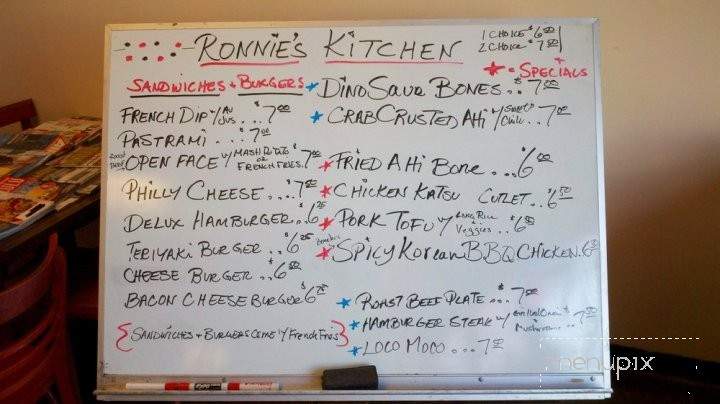 RONNIE'S KITCHEN
1 CHOICE $6.00
2 CHOICE $7.00
* = SPECIALS
SANDWICHES + BURGERS
FRENCH DIP w/ AU JUS .. $7.00
PASTRAMI ... $7.00
ROAST BEEF OPEN FACE w/ MASH POTATO OR FRENCH FRIES. 7.00
PHILLY CHEESE ... $7.00
DELUX HAMBURGER .. $6.25
TERIYAKI BURGER .. $6.25
CHEESE BURGER .. $6.50
BACON CHEESE BURGER $6.75
{SANDWICHES + BURGERS COME w/ French Fries}
* DINOSAUR BONES .. $7.00
* CRAB CRUSTED AHI w/ Sweet Chili .. $7.00
* FRIED AHI BONE ... $6.00
* CHICKEN KATSU CUTLET .. $6.50
* PORK TOFU w/ Long Rice + Veggies .. $6.50
* Boneless SPICY Korean BBQ CHICKEN. $6.50
* ROAST BEEF PLATE ... $7.00
* HAMBURGER STEAK w/ Grilled Onion + Mushroom .. $7.00
* LOCO MOCO ... $7.00
EXPO
menupix